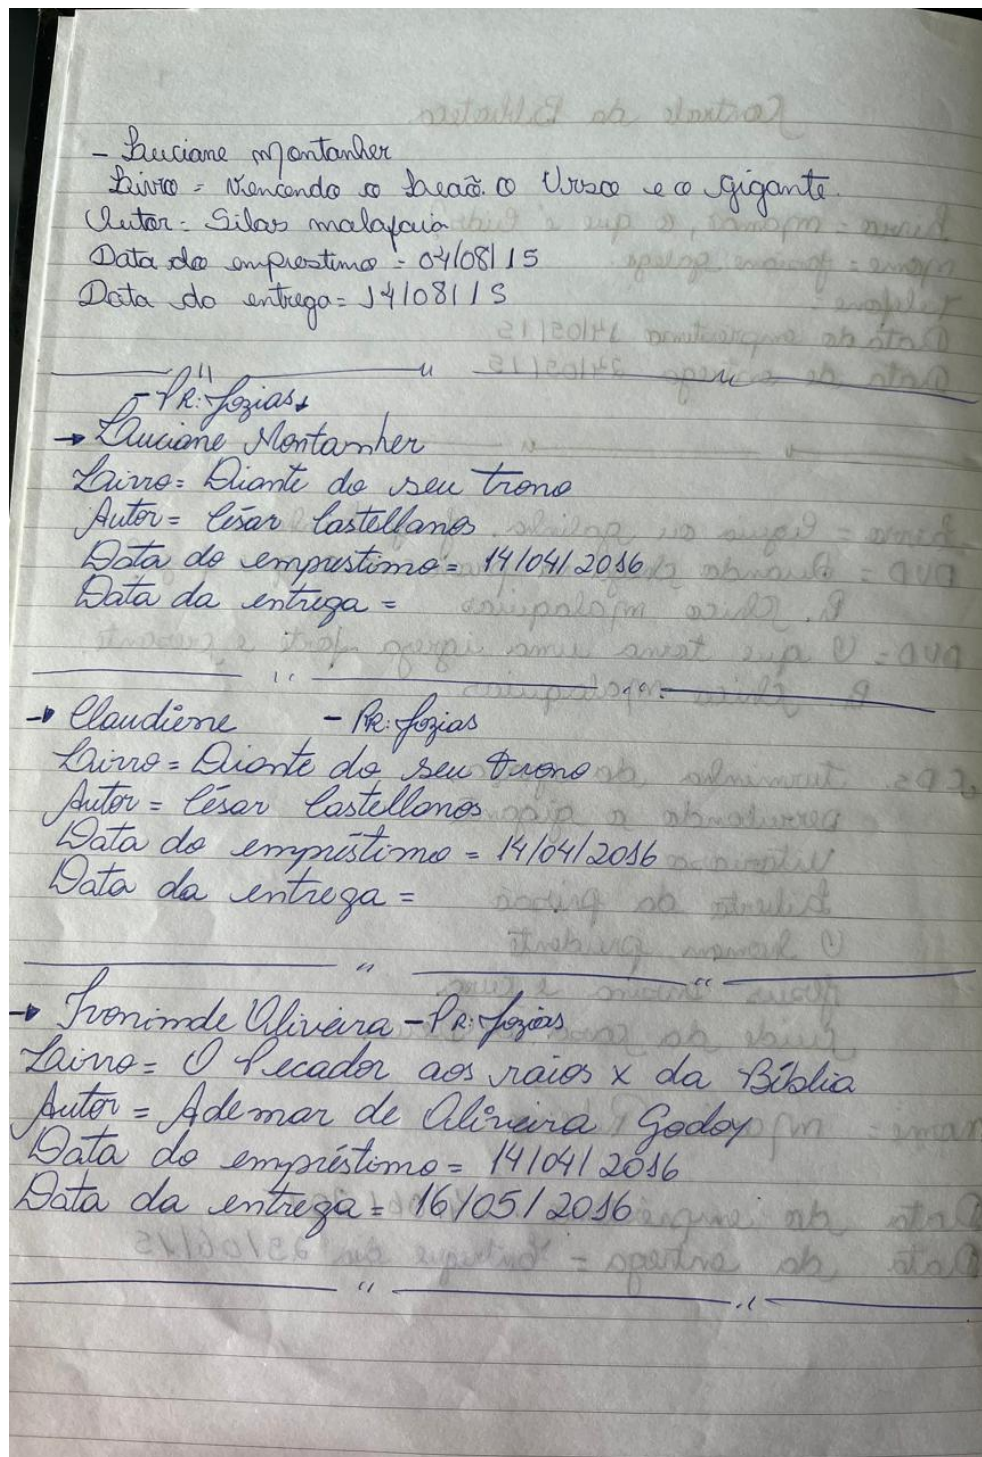 - Luciane Montanher
Livro = Vencendo o Leão. o Urso e o gigante.
Autor = Silas malafaia
Data do emprestimo = 04/08/15
Data do entrega = 14/08/15
- PR: Jozias
→ Luciane Montanher
Livro = Diante do seu trono
Autor = César Castellanos
Data do emprestimo = 14/04/2016
Data da entrega =
→ Claudiene - PR: Jozias
Livro = Diante do seu trono
Autor = César Castellanos
Data do empréstimo = 14/04/2016
Data da entrega =
→ Ivonimde Oliveira - PR: Jozias
Livro = O Pecador aos raios x da Bíblia
Autor = Ademar de Oliveira Godoy
Data do empréstimo = 14/04/2016
Data da entrega = 16/05/2016